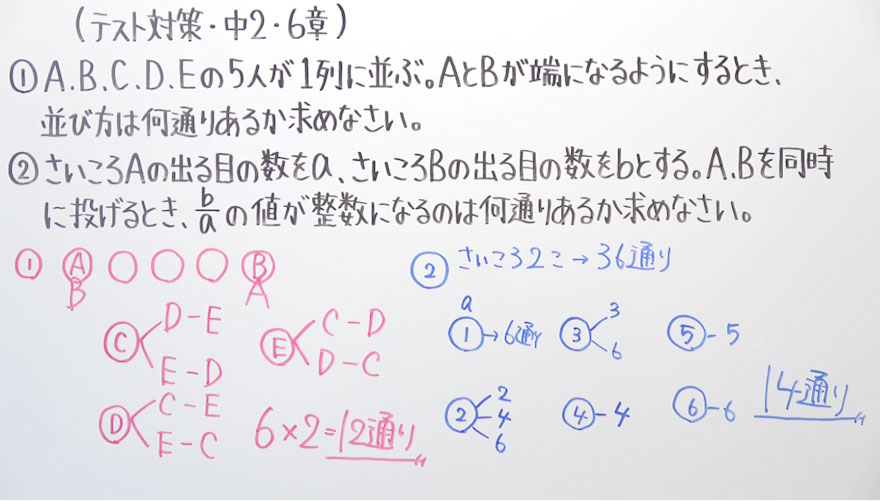 (テスト対策・中2・6章)
① A.B.C.D.Eの5人が1列に並ぶ。AとBが端になるようにするとき、
並び方は何通りあるか求めなさい。
② さいころAの出る目の数をa、さいころBの出る目の数をbとする。A.Bを同時
に投げるとき、b/aの値が整数になるのは何通りあるか求めなさい。
① Ⓐ ○ ○ ○ Ⓑ
B A
Ⓒ D-E
E-D
Ⓔ C-D
D-C
Ⓓ C-E
E-C
6×2=12通り
② さいころ2こ→36通り
a
①→6通り
② 2
4
6
③ 3
6
④-4
⑤-5
⑥-6
14通り